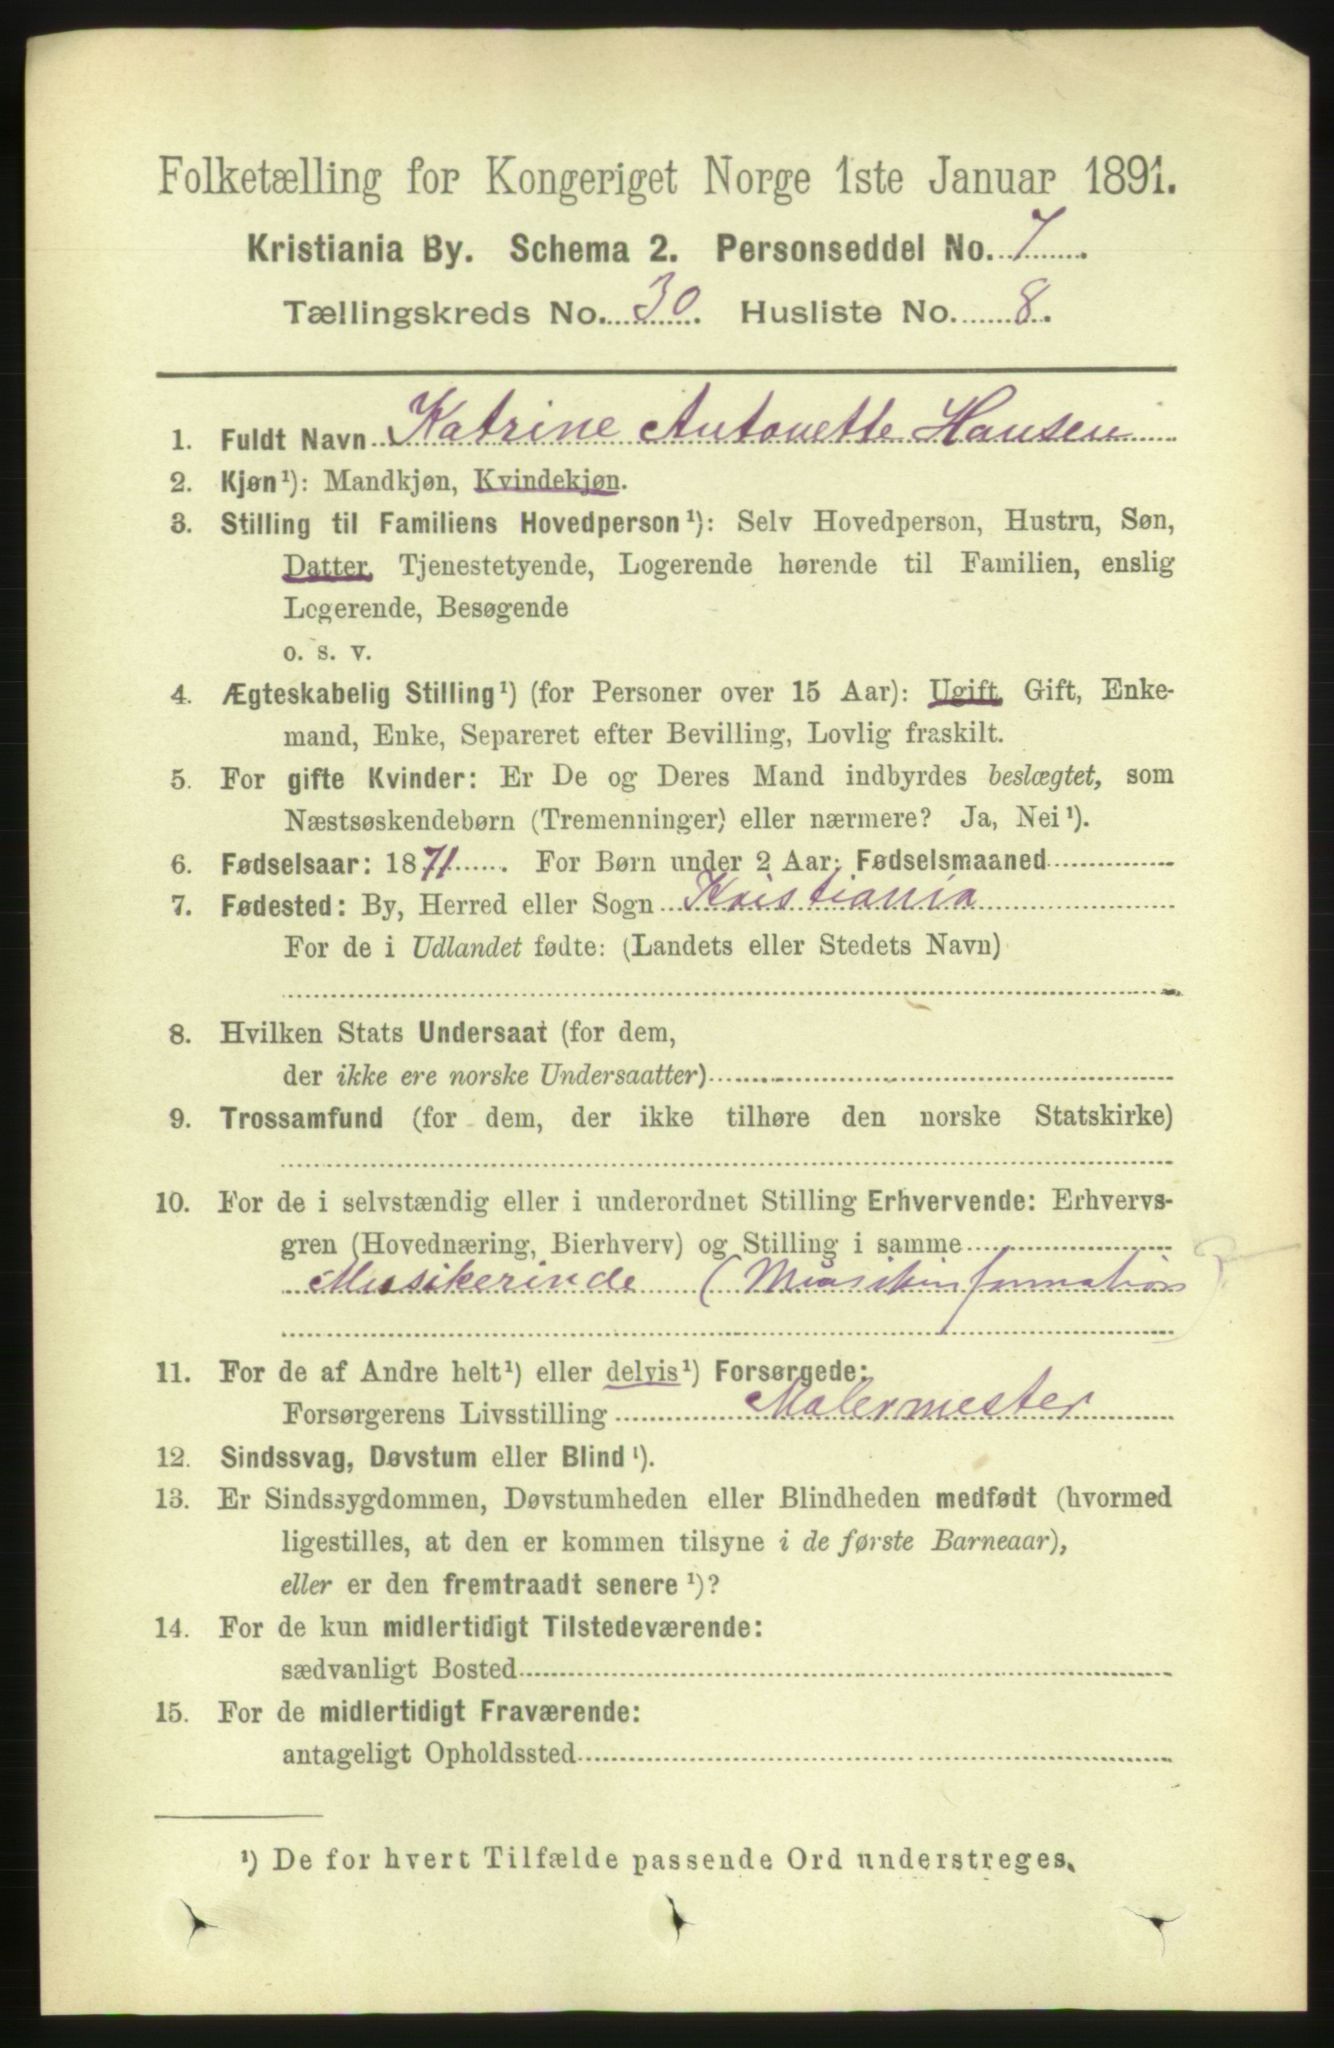 Folketælling for Kongeriget Norge 1ste Januar 1891.
Kristiania By. Schema 2. Personseddel No. 7
Tællingskreds No. 30. Husliste No. 8.
1. Fuldt Navn Katrine Antonette Hansen
2. Kjøn¹): Mandkjøn, Kvindekjøn.
3. Stilling til Familiens Hovedperson¹): Selv Hovedperson, Hustru, Søn,
Datter, Tjenestetyende, Logerende hørende til Familien, enslig
Logerende, Besøgende
o. s. v.
4. Ægteskabelig Stilling¹) (for Personer over 15 Aar): Ugift, Gift, Enke-
mand, Enke, Separeret efter Bevilling, Lovlig fraskilt.
5. For gifte Kvinder: Er De og Deres Mand indbyrdes beslægtet, som
Næstsøskendebørn (Tremenninger) eller nærmere? Ja, Nei¹).
6. Fødselsaar: 1871. For Børn under 2 Aar: Fødselsmaaned
7. Fødested: By, Herred eller Sogn Kristiania
For de i Udlandet fødte: (Landets eller Stedets Navn)
8. Hvilken Stats Undersaat (for dem,
der ikke ere norske Undersaatter)
9. Trossamfund (for dem, der ikke tilhøre den norske Statskirke)
10. For de i selvstændig eller i underordnet Stilling Erhvervende: Erhvervs-
gren (Hovednæring, Bierhverv) og Stilling i samme
Musikerinde (Musikinformation)
11. For de af Andre helt¹) eller delvis¹) Forsørgede:
Forsørgerens Livsstilling Malermester
12. Sindssvag, Døvstum eller Blind¹).
13. Er Sindssygdommen, Døvstumheden eller Blindheden medfødt (hvormed
ligestilles, at den er kommen tilsyne i de første Barneaar),
eller er den fremtraadt senere¹)?
14. For de kun midlertidigt Tilstedeværende:
sædvanligt Bosted
15. For de midlertidigt Fraværende:
antageligt Opholdssted
¹) De for hvert Tilfælde passende Ord understreges.